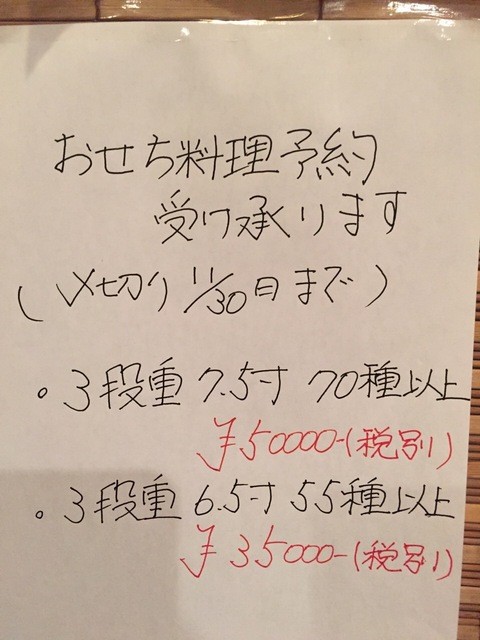 おせち料理予約
受け承ります
(〆切り 11/30日まで)
。3段重 7.5寸 70種以上
¥50000-(税別)
。3段重 6.5寸 55種以上
¥35000-(税別)